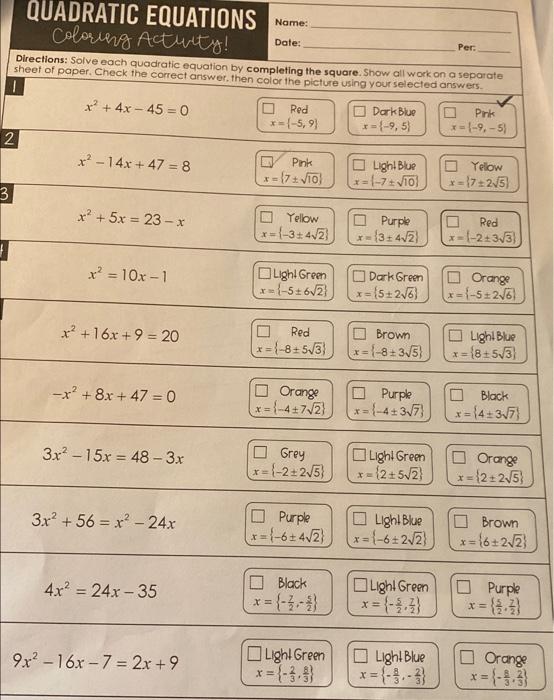 QUADRATIC EQUATIONS
Coloring Activity!
Name:
Date:
Per:
Directions: Solve each quadratic equation by completing the square. Show all work on a separate
sheet of paper. Check the correct answer, then color the picture using your selected answers.
1
x² + 4x – 45 = 0
Red
x = {–5, 9}
Dark Blue
x = {–9, 5}
Pink
x = {–9, –5}
2
x² – 14x + 47 = 8
Pink
x = {7 ± √10}
Light Blue
x = {–7 ± √10}
Yellow
x = {7 ± 2√5}
3
x² + 5x = 23 – x
Yellow
x = {–3 ± 4√2}
Purple
x = {3 ± 4√2}
Red
x = {–2 ± 3√3}
x² = 10x – 1
Light Green
x = {–5 ± 6√2}
Dark Green
x = {5 ± 2√6}
Orange
x = {–5 ± 2√6}
x² + 16x + 9 = 20
Red
x = {–8 ± 5√3}
Brown
x = {–8 ± 3√5}
Light Blue
x = {8 ± 5√3}
–x² + 8x + 47 = 0
Orange
x = {–4 ± 7√2}
Purple
x = {–4 ± 3√7}
Black
x = {4 ± 3√7}
3x² – 15x = 48 – 3x
Grey
x = {–2 ± 2√5}
Light Green
x = {2 ± 5√2}
Orange
x = {2 ± 2√5}
3x² + 56 = x² – 24x
Purple
x = {–6 ± 4√2}
Light Blue
x = {–6 ± 2√2}
Brown
x = {6 ± 2√2}
4x² = 24x – 35
Black
x = {–7/2, –5/2}
Light Green
x = {–5/2, 7/2}
Purple
x = {5/2, 7/2}
9x² – 16x – 7 = 2x + 9
Light Green
x = {–2/3, 8/3}
Light Blue
x = {–8/3, –2/3}
Orange
x = {–8/3, 2/3}